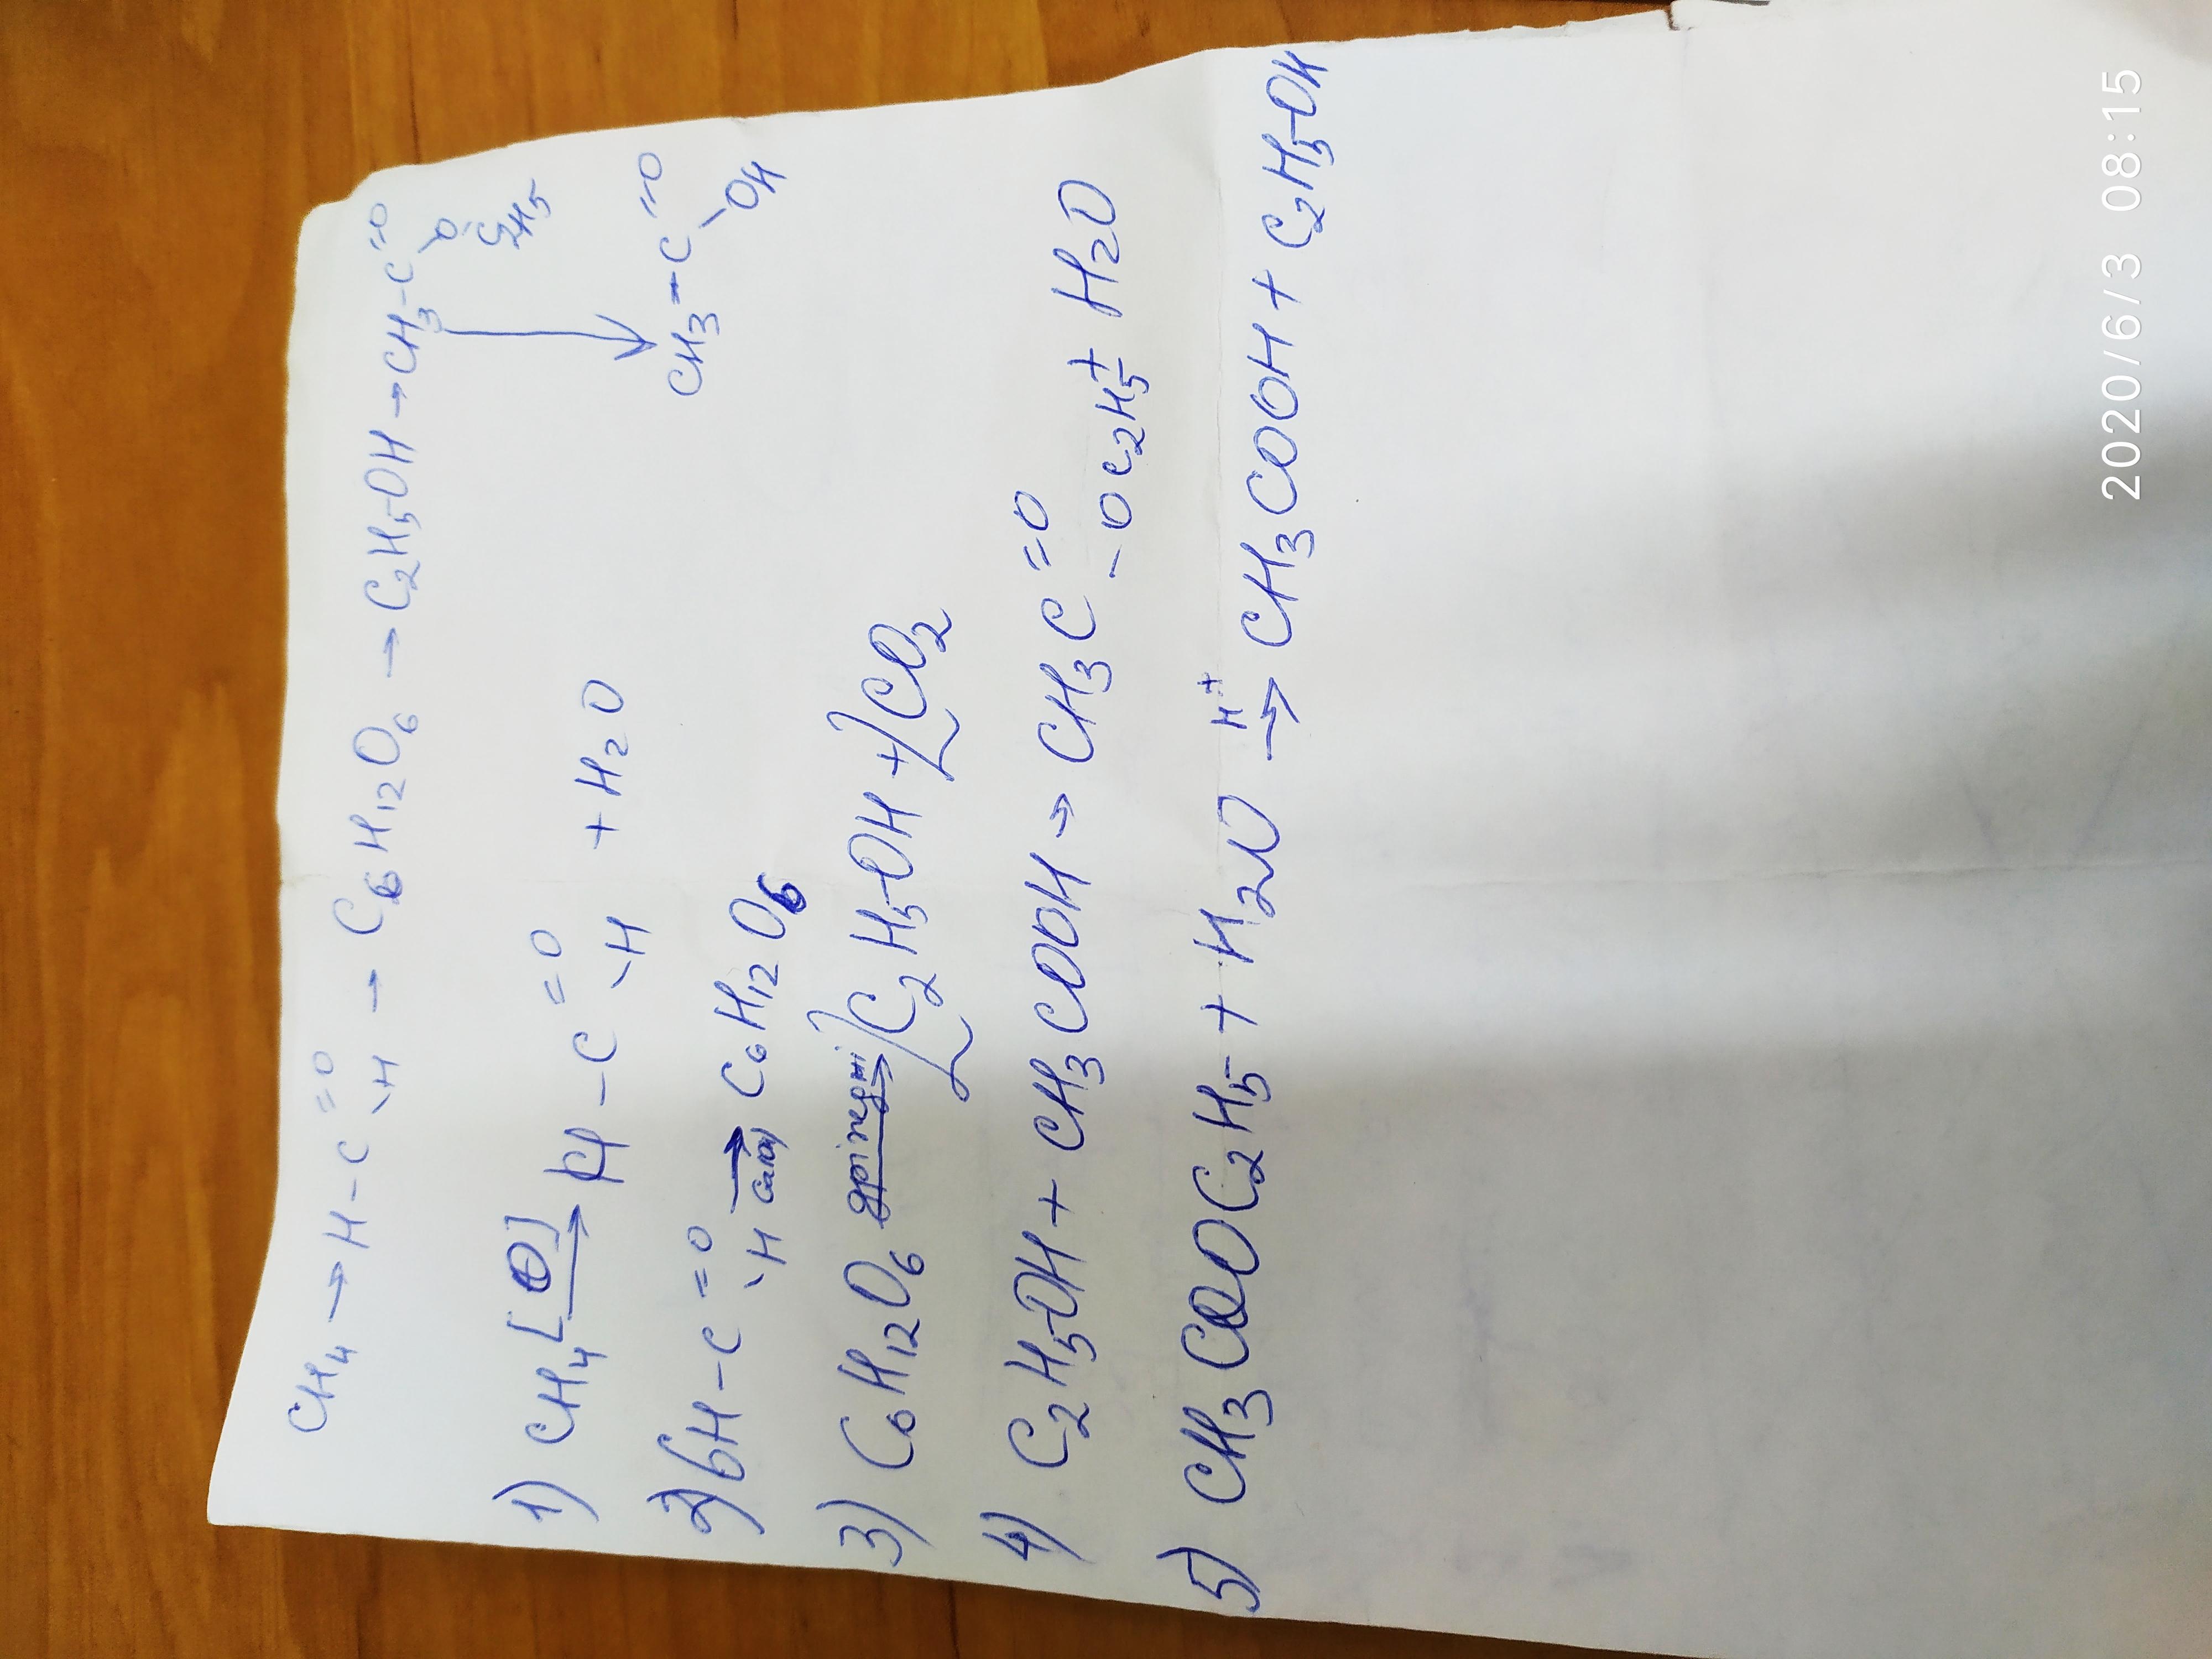 CH₄ → H-C =O \H → C₆H₁₂O₆ → C₂H₅OH → CH₃-C =O \O-C₂H₅
↓
CH₃-C =O \OH
1) CH₄ [O]→ H-C =O \H + H₂O
2) 6H-C =O \H → Ca(OH) C₆H₁₂O₆
3) C₆H₁₂O₆ → 2C₂H₅OH + 2CO₂
4) C₂H₅OH + CH₃COOH → CH₃C =O -OC₂H₅ + H₂O
5) CH₃COOC₂H₅ + H₂O H⁺→ CH₃COOH + C₂H₅OH
2020/6/3 08:15